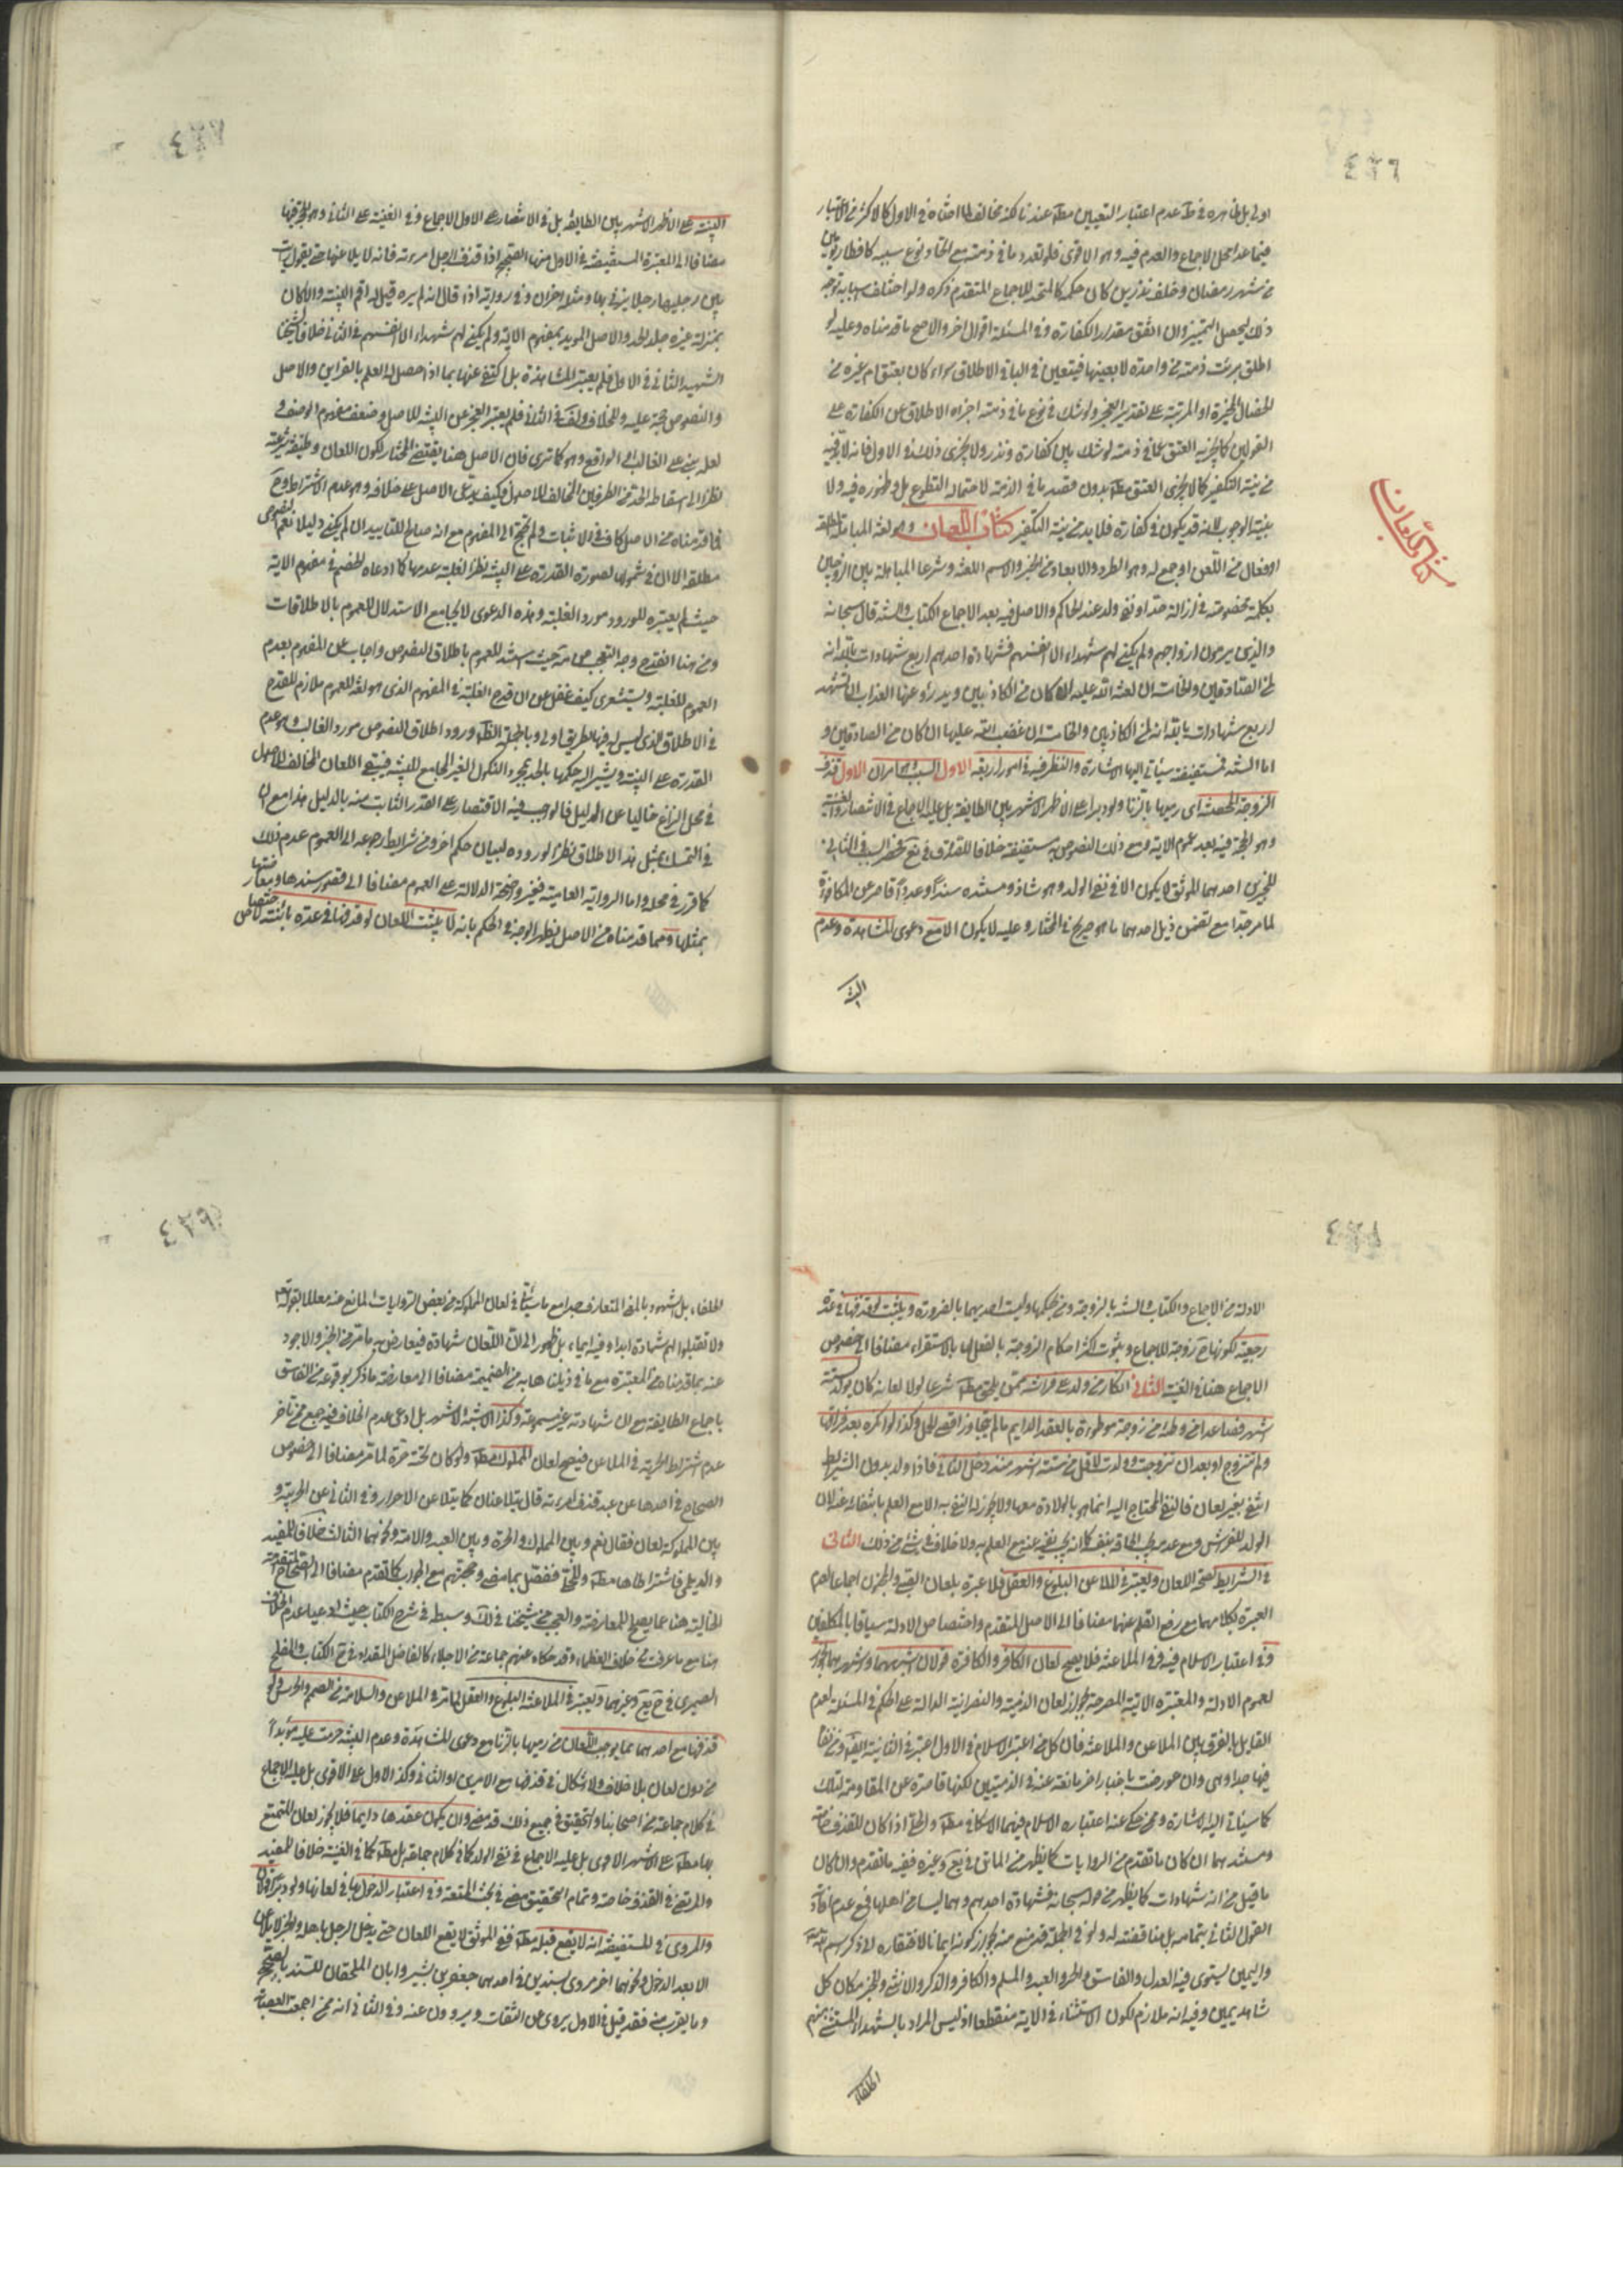 ٤٣٦
اولى بل ظاهره في عدم اعتبار التعيين عندنا لكنه مخالف لما اختاره في الاول كالاكثر من الاعتبار
فيما عدا محل الاجماع والعدم فيه وهو الاقوى فلو تعدد ما في ذمته مع اتحاد نوع سببه كافطار يومين
من شهر رمضان وخلف نذرين كان حكمه كالمتحد للاجماع المتقدم ذكره ولو اختلف اسبابه توجه
ذلك ليحصل التمييز وان اتفق مقدار الكفارة وفي المسئلة اقوال اخر والاصح ما قدمناه وعليه لو
اطلق برئت ذمته من واحدة لا بعينها فيتعين في الباقي الاطلاق سواء كان بعتق ام غيره من
الخصال المخيرة او المرتبة على تقدير العجز ولو شك في نوع ما في ذمته اجزأه الاطلاق عن الكفارة على
القولين كما يجزيه العتق عما في ذمته لو شك بين كفارة ونذر ولا يجزي ذلك في الاول فانه لا بد فيه
من نية التكفير كما لا يجزي العتق بدون قصد ما في الذمة لاحتماله التطوع بل وظهوره فيه ولا
بنية الوجوب لانه قد يكون في كفارة فلا بد من نية التكفير كتاب اللعان وهو لغة المباهلة المطلقة
او فعال من اللعن او جمع له وهو الطرد والابعاد من الخير والاسم اللعنة وشرعا المباهلة بين الزوجين
بكلمة مخصوصة في ازالة حد او نفي ولد عند الحاكم والاصل فيه بعد الاجماع الكتاب والسنة قال سبحانه
والذين يرمون ازواجهم ولم يكن لهم شهداء الا انفسهم فشهادة احدهم اربع شهادات بالله انه
لمن الصادقين والخامسة ان لعنة الله عليه ان كان من الكاذبين ويدرؤ عنها العذاب ان تشهد
اربع شهادات بالله انه لمن الكاذبين والخامسة ان غضب الله عليها ان كان من الصادقين و
اما السنة فمستفيضة سيأتي اليها الاشارة والنظر فيه في امور اربعة الاول السبب وهو امران الاول قذف
الزوجة المحصنة اي رميها بالزنا ولو دبرا على الاظهر الاشهر بين الطايفة بل عليه الاجماع في الانتصار والغنية
وهو الحجة فيه بعد عموم الاية ومع ذلك النصوص به مستفيضة خلافا للصدوق في فحصر السبب في الثاني
للخبرين احدهما الموثق لا يكون الا في نفي الولد وهو شاذ ومستنده سندا وعددا قاصر عن المكافؤة
لما مر جدا مع تضمن ذيل احدهما ما هو صريح في المختار وعليه لا يكون الا مع دعوى المشاهدة وعدم
البينة
كتاب اللعان
٤٣٧
البينة على الاظهر الاشهر بين الطايفة بل في الانتصار على الاول الاجماع وفي الغنية على الثاني وهو الحجة فيها
مضافا الى المعتبرة المستفيضة في الاول منها الصحيح اذا قذف الرجل امرءته فانه لا يلاعنها حتى يقول رأيت
بين رجليها رجلا يزني بها ومثله اخران وفي رواية اذا قال انه لم يره قيل له اقم البينة والا كان
بمنزلة غيره جلد الحد والاصل المؤيد بمفهوم الاية ولم يكن لهم شهداء الا انفسهم في الثاني خلافا لشيخنا
الشهيد الثاني في الاول فلم يعتبر المشاهدة بل اكتفى عنها بما اذا حصل له العلم بالقراين والاصل
والنصوص حجة عليه وللخلاف في الثاني فلم يعتبر العجز عن البينة للاصل وضعف مفهوم الوصف و
لعله مبني على الغالب في الواقع وهو كما ترى فان الاصل هنا يقتضي المختار لكون اللعان وظيفة شرعية
نظرا الى اسقاطه الحد من الطرفين المخالف للاصول وكيف يدعى الاصل على خلافه وهو عدم الاشتراط وح
فما قدمناه من الاصل كاف في الاثبات ولم نحتج الى المفهوم مع انه صالح للتاييد ان لم يكن دليلا نعم النصوص
مطلقة الا ان في شمولها لصورة القدرة على البينة نظرا لغلبة عدمها كما ادعاه الخصم في مفهوم الاية
حيث لم يعتبره لوروده مورد الغلبة وهذه الدعوى لا يجامع الاستدلال للعموم بالاطلاقات
ومن هنا انقدح وجه التعجب حيث استند للعموم باطلاق النصوص واجاب عن المفهوم بعدم
العموم للغلبة وليت شعري كيف غفل عن ان قدح الغلبة في المفهوم الذي هو لغة للعموم ملازم للقدح
في الاطلاق الذي ليس له فيها بطريق اولى وبالجملة الظاهر ورود اطلاق النصوص مورد الغالب وهو عدم
القدرة على البينة ويشير اليه حكمها بالحد بمجرد النكول الغير الجامع للبينة فيبقى اللعان المخالف للاصول
في محل النزاع خاليا عن الدليل فالواجب فيه الاقتصار على القدر الثابت منه بالدليل هذا مع ان
في التمسك بمثل هذا الاطلاق نظرا لوروده لبيان حكم اخر ومن شرايط رجوعه الى العموم عدم ذلك
كما قرر في محله واما الرواية العامية فغير واضحة الدلالة على العموم مضافا الى قصور سندها ومعارضتها
بمثلها ومما قدمناه من الاصل يظهر الوجه في الحكم بانه لا يثبت اللعان لو قذفها في عدة باينة لاختصاص
٤٣٨
الادلة من الاجماع والكتاب والسنة بالزوجة ومن بحكمها وليست احديهما بالضرورة ويثبت لو قذفها في عدة
رجعية لكونها ح زوجة للاجماع وثبوت اكثر احكام الزوجة بالفعل لها بالاستقراء مضافا الى خصوص
الاجماع هنا في الغنية الثاني انكار من ولد على فراشه ممن يلحق به شرعا لولا لعانه كان يولد لستة
اشهر فصاعدا من وطئه من زوجة موطوءة بالعقد الدايم ما لم يتجاوز اقصى الحمل وكذا لو انكره بعد فراقها
ولم تتزوج او بعد ان تزوجت وولدت لاقل من ستة اشهر منذ دخل الثاني فاذا ولد بدون الشرايط
انتفى بغير لعان فالنفي المحتاج اليه انما هو بالولادة معها ولا يجوز له النفي به الا مع العلم بانتفائه عنه لان
الولد للفراش ومع عدمه يجب الحاقه بنفسه كما انه يجب نفيه عنه مع العلم به ولا خلاف في شئ من ذلك الثاني
في الشرايط لصحة اللعان ويعتبر في الملاعن البلوغ والعقل فلا عبرة بلعان الصبي والمجنون اجماعا لعدم
العبرة بكلامهما مع رفع القلم عنهما مضافا الى الاصل المتقدم واختصاص الادلة سياقا بالمكلفين
وفي اعتبار الاسلام فيه وفي الملاعنة فلا يصح لعان الكافر والكافرة قولان اشبههما واشهرهما الجواز
لعموم الادلة والمعتبرة الاتية المصرحة بجواز لعان الذمية والنصرانية الدالة على الحكم في المسئلة لعدم
القايل بالفرق بين الملاعن والملاعنة فان كل من اعتبر الاسلام في الاول اعتبره في الثانية
فيها جدا وهي وان عورضت باخبار اخر مانعة عنه في الذميتين لكنها قاصرة عن المقاومة لتلك
كما سيأتي اليه الاشارة وممن حكي عنه اعتباره الاسلام فيهما الاسكافي مطلقا والحلي اذا كان للقذف خاصة
ومستندهما ان كان ما تقدم من الروايات كما يظهر من الماتن في يع وغيره ففيه ما تقدم وان كان
ما قيل من انه شهادات كما يظهر من قوله سبحانه فشهادة احدهم وهما ليسا من اهلها فمع عدم افادته
القول الثاني بتمامه بل مناقضته له ولو في الجملة قد منع منه بجواز كونه ايمانا لافتقاره الى ذكر اسم الله تعالى
واليمين يستوي فيه العدل والفاسق والحر والعبد والمسلم والكافر والذكر والانثى وللخبر مكان كل
شاهد يمين وفيه انه ملازم لكون الاستثناء في الاية منقطعا اذ ليس المراد بالشهداء المستثنى منهم
الحلفاء
٤٣٩
الحلفاء بل الشهود بالمعنى المتعارف جدا مع ما سيأتي في لعان المملوكة من بعض الروايات المانع عنه معللا بقوله تعالى
ولا تقبلوا لهم شهادة ابدا وفيه ايماء بل ظهور الى ان اللعان شهادة فيعارض به ما مر من الخبر والاجود
عنه بما قدمناه من المعتبرة مع ما في ذيلنا هابه من الضميمة مضافا الى معارضة ما ذكر بوقوعه من الفاسق
باجماع الطايفة مع ان شهادته غير مسموعة وكذا الاشبه الاشهر بل ادعى عدم الخلاف فيه جمع ممن تاخر
عدم اشتراط الحرية في الملاعن فيصح لعان المملوك مطلقا ولو كان تحته حرة لما مر مضافا الى خصوص
الصحاح في احدها عن عبد قذف امرءته قال يتلاعنان كما يتلاعن الاحرار وفي الثاني عن الحر بينه و
بين المملوكة لعان فقال نعم وبين المملوك والحرة وبين العبد والامة ونحوهما الثالث خلافا للمفيد
والديلمي فاشترطاها مطلقا وللحلي ففصل بما مضى وحجتهم مع الجواب كما تقدم مضافا الى الصحاح المتقدمة
الخالية هنا عما يصلح للمعارضة والعجب من شيخنا في لك وسبطه في شرح الكتاب حيث ادعيا عدم الخلاف
هنا مع ما عرفت من خلاف العظماء وقد حكاه عنهم جماعة من الاجلاء كالفاضل المقداد في شرح الكتاب والمفلح
الصيمري في شرح يع وغيرهما ويعتبر في الملاعنة البلوغ والعقل لما مر في الملاعن والسلامة من الصمم والخرس ولو
قذفها مع احدهما بما يوجب اللعان من رميها بالزنا مع دعوى المشاهدة وعدم البينة حرمت عليه مؤبدا
من دون لعان بلا خلاف ولا اشكال في قذفها مع الامرين او الثاني وكذا الاول على الاقوى بل عليه الاجماع
في كلام جماعة من اصحابنا والتحقيق في جميع ذلك قد مضى وان يكون عقدها دايما فلا يجوز لعان المتمتع
بها مطلقا على الاشهر الاقوى بل عليه الاجماع في نفي الولد كما في كلام جماعة بل مطلقا كما في الغنية خلافا للمفيد
والمرتضى في القذف خاصة وتمام التحقيق مضى في بحث المتعة وفي اعتبار الدخول بها في لعانها ولو دبرا قولان
والمروي في المستفيضة انه لا يقع قبله مطلقا ففي الموثق لا يقع اللعان حتى يدخل الرجل باهله وللخبر لا يلاعن
الا بعد الدخول ونحوهما اخر مروي بسندين في احدهما جعفر بن بشير وابان الملحقان للسند بالصحيح
وما يقرب منه فقد قيل في الاول يروي عن الثقات ويروون عنه وفي الثاني انه ممن اجمعت العصابة